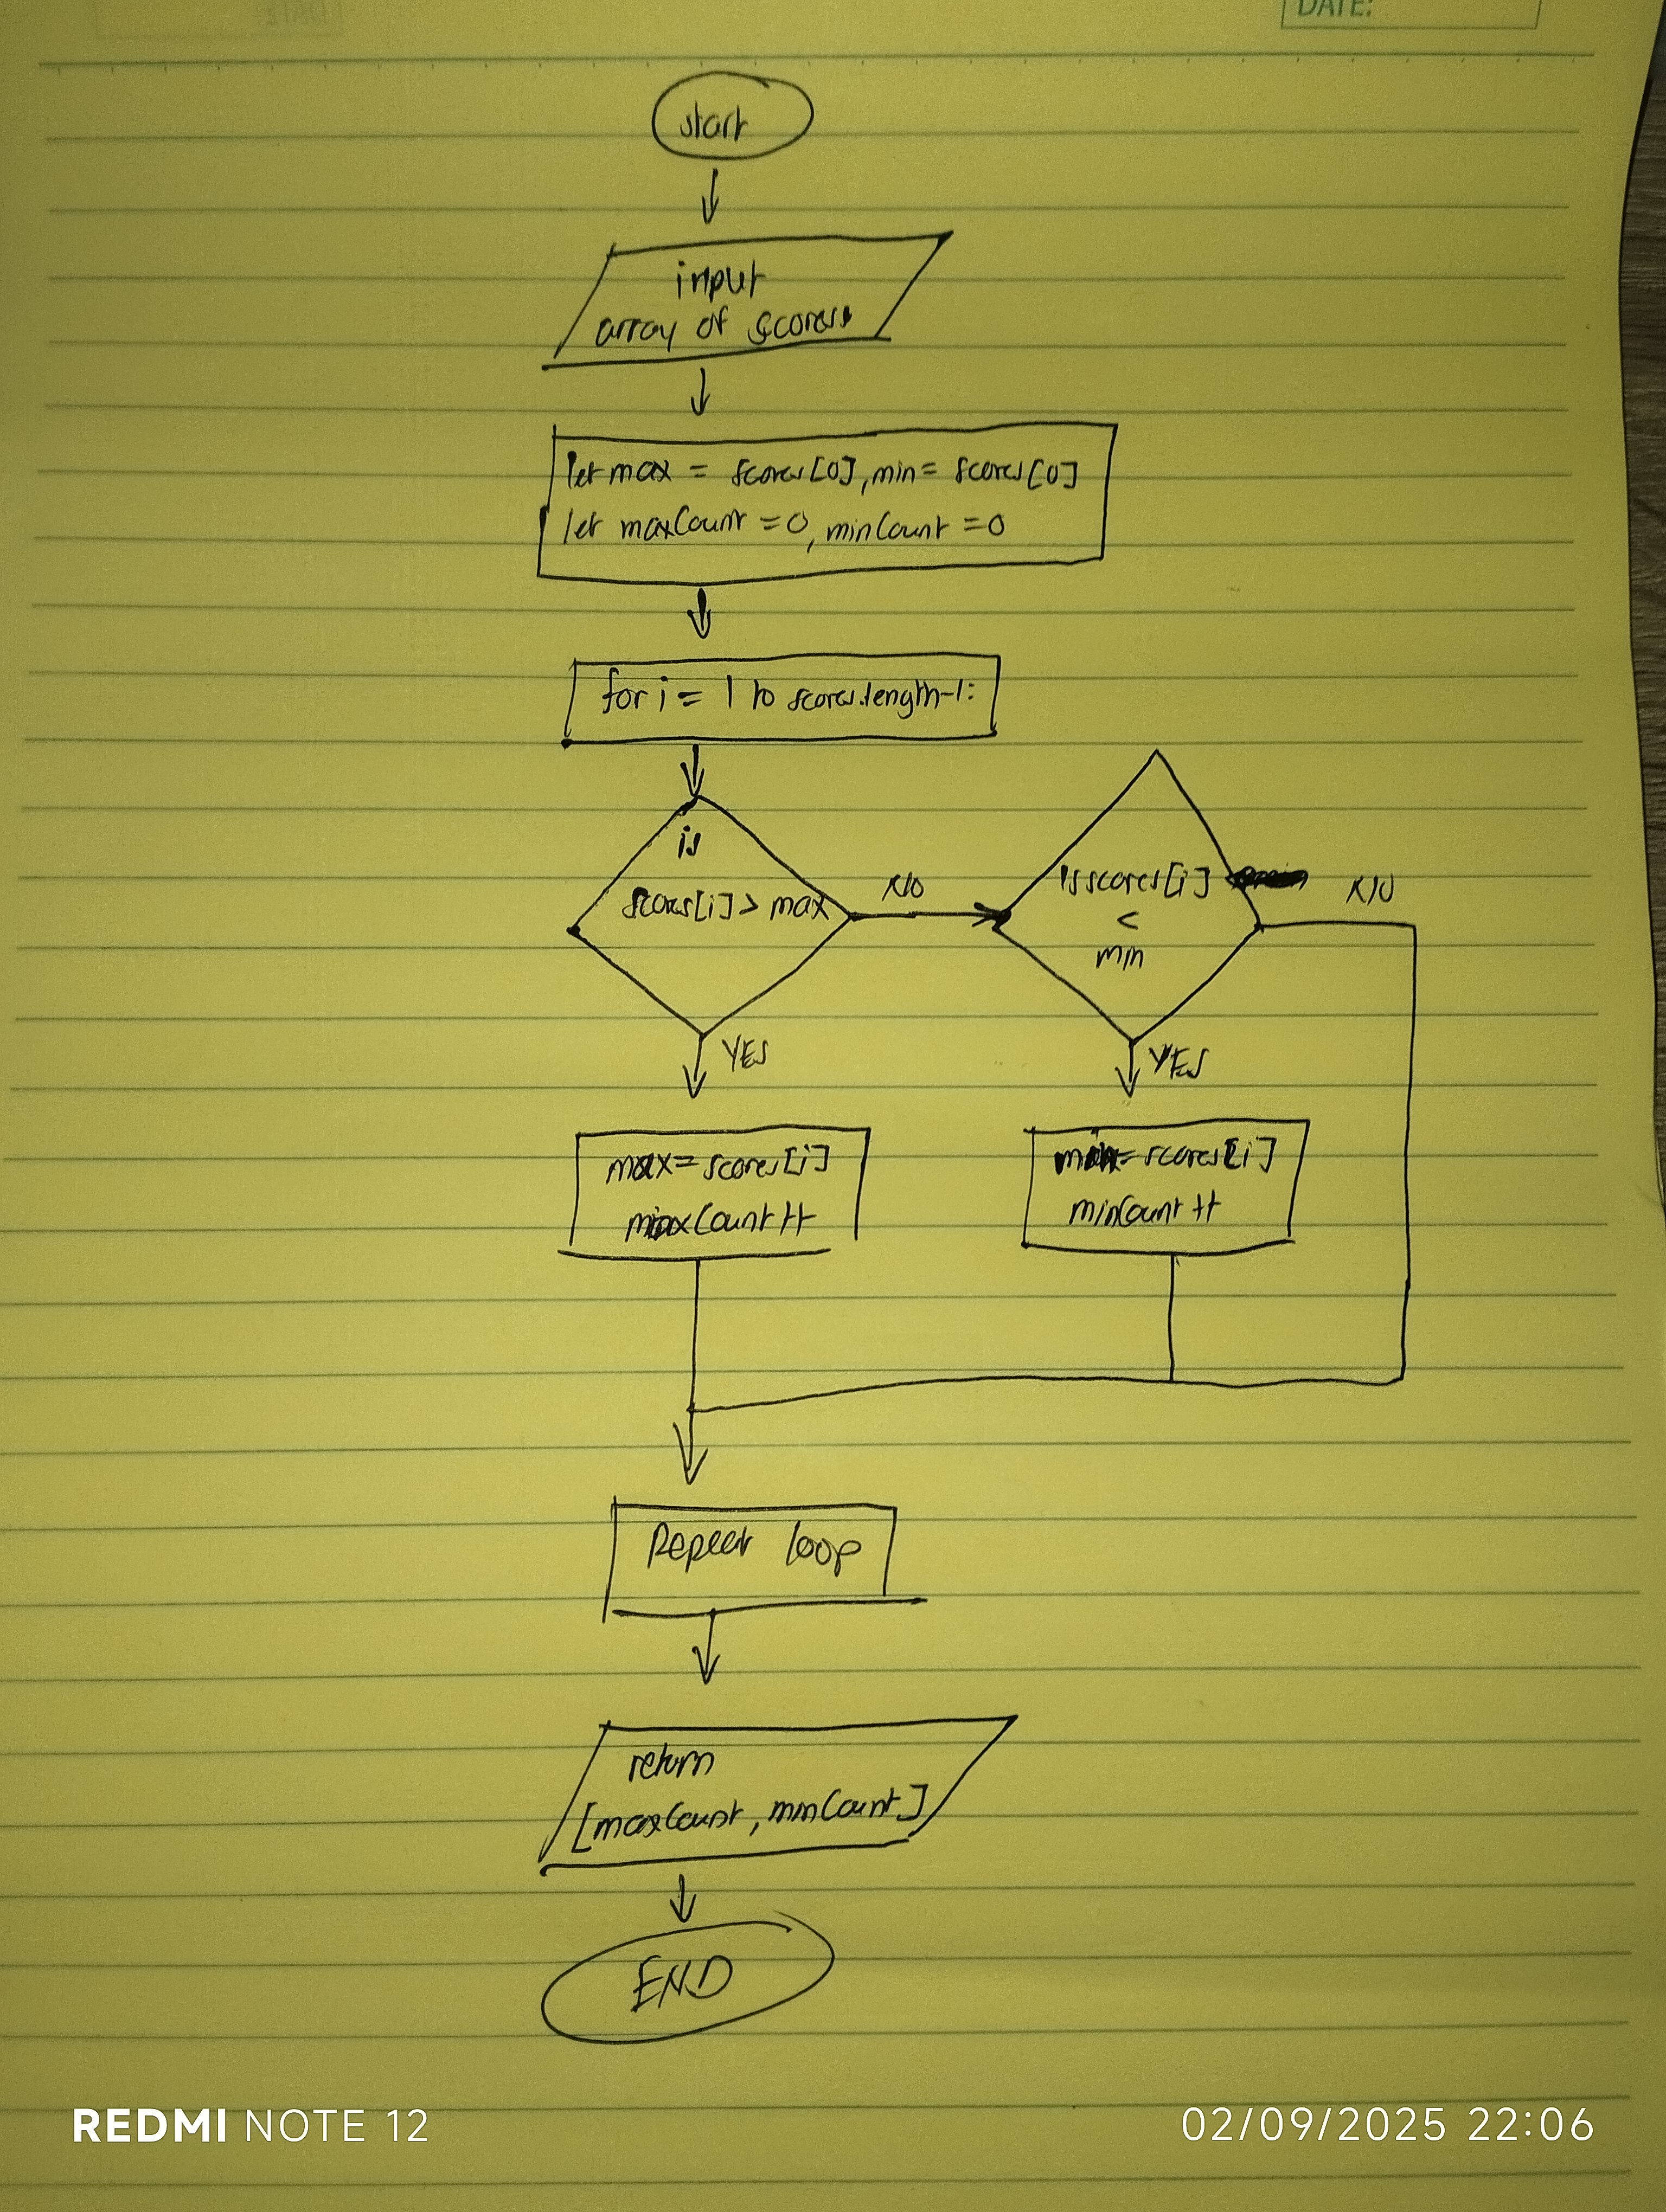 DATE:
start
input
array of scores
let max = scores[0], min = scores[0]
let maxCount = 0, minCount = 0
for i = 1 to scores.length-1:
is
scores[i] > max
NO
Is scores[i]
<
min
NO
YES
YES
max = scores[i]
maxCount ++
min = scores[i]
minCount ++
Repeat loop
return
[maxCount, minCount]
END
REDMI NOTE 12
02/09/2025 22:06